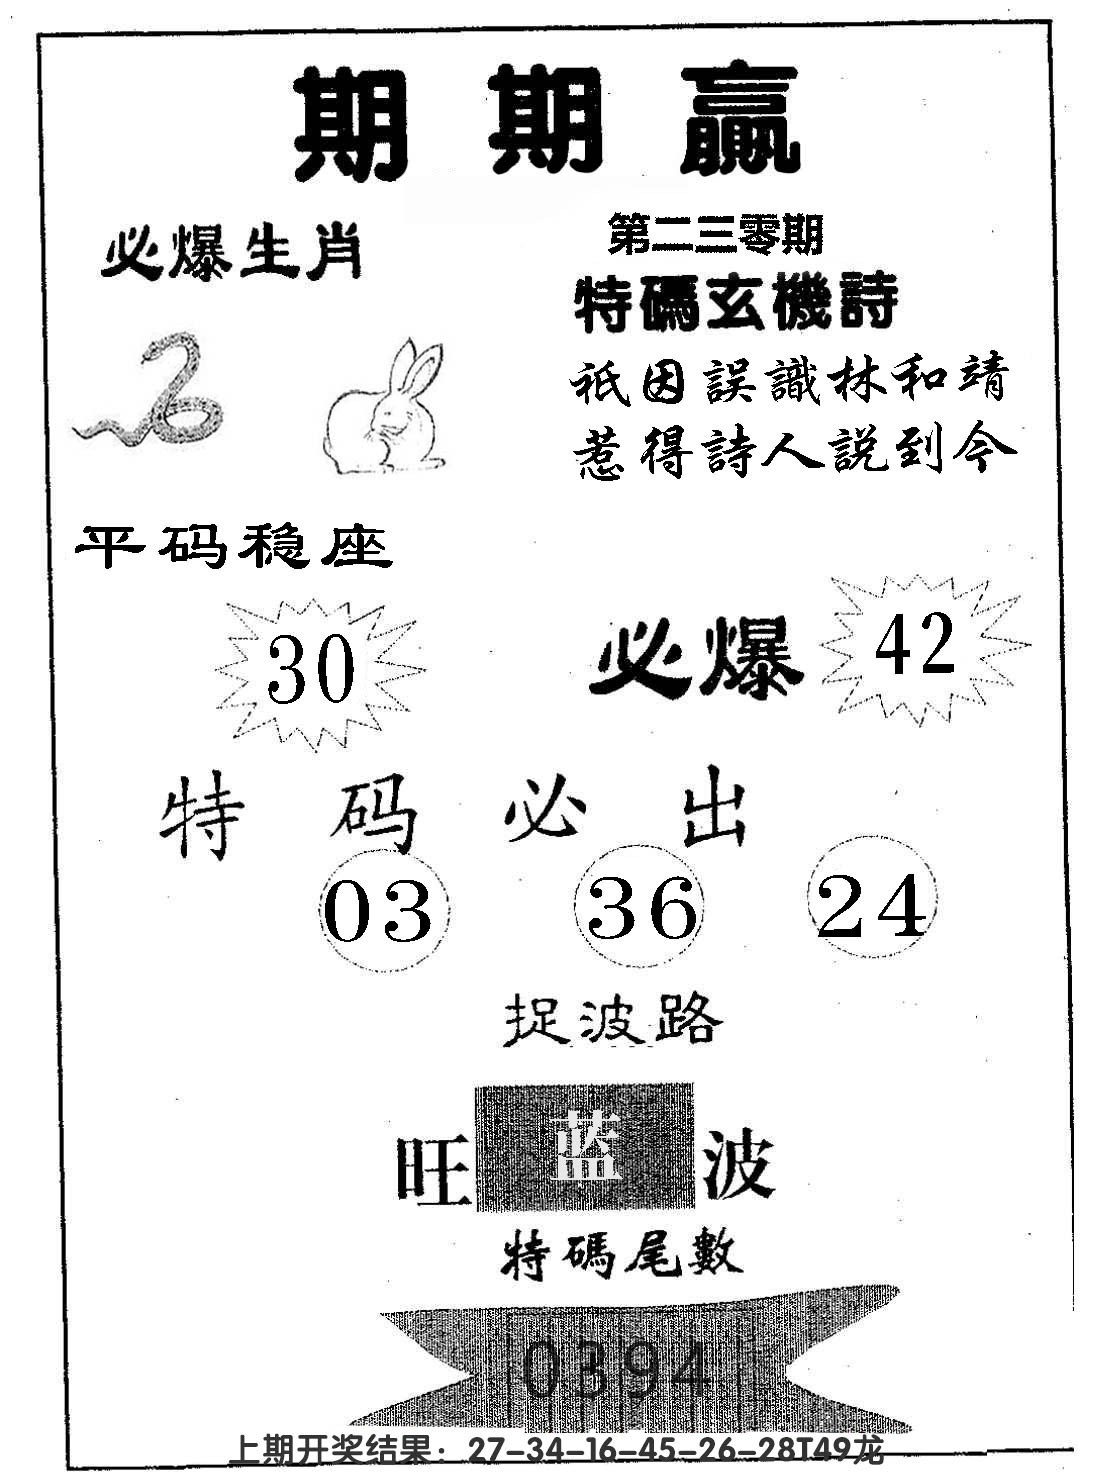 期期贏
必爆生肖
第二三零期
特碼玄機詩
祇因誤識林和靖
惹得詩人説到今
平码稳座
30
必爆 42
特码必出
03 36 24
捉波路
旺 蓝 波
特碼尾數
0394
上期开奖结果：27-34-16-45-26-28T49龙